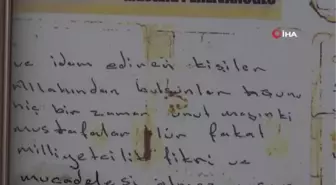 İHA
ve idam edinen kişiler
Allahından bulsunlar bunu
hiç bir zaman unut mayınki
mustafalar ölür fakat
milliyetcilik fikri ve
mucadelesi